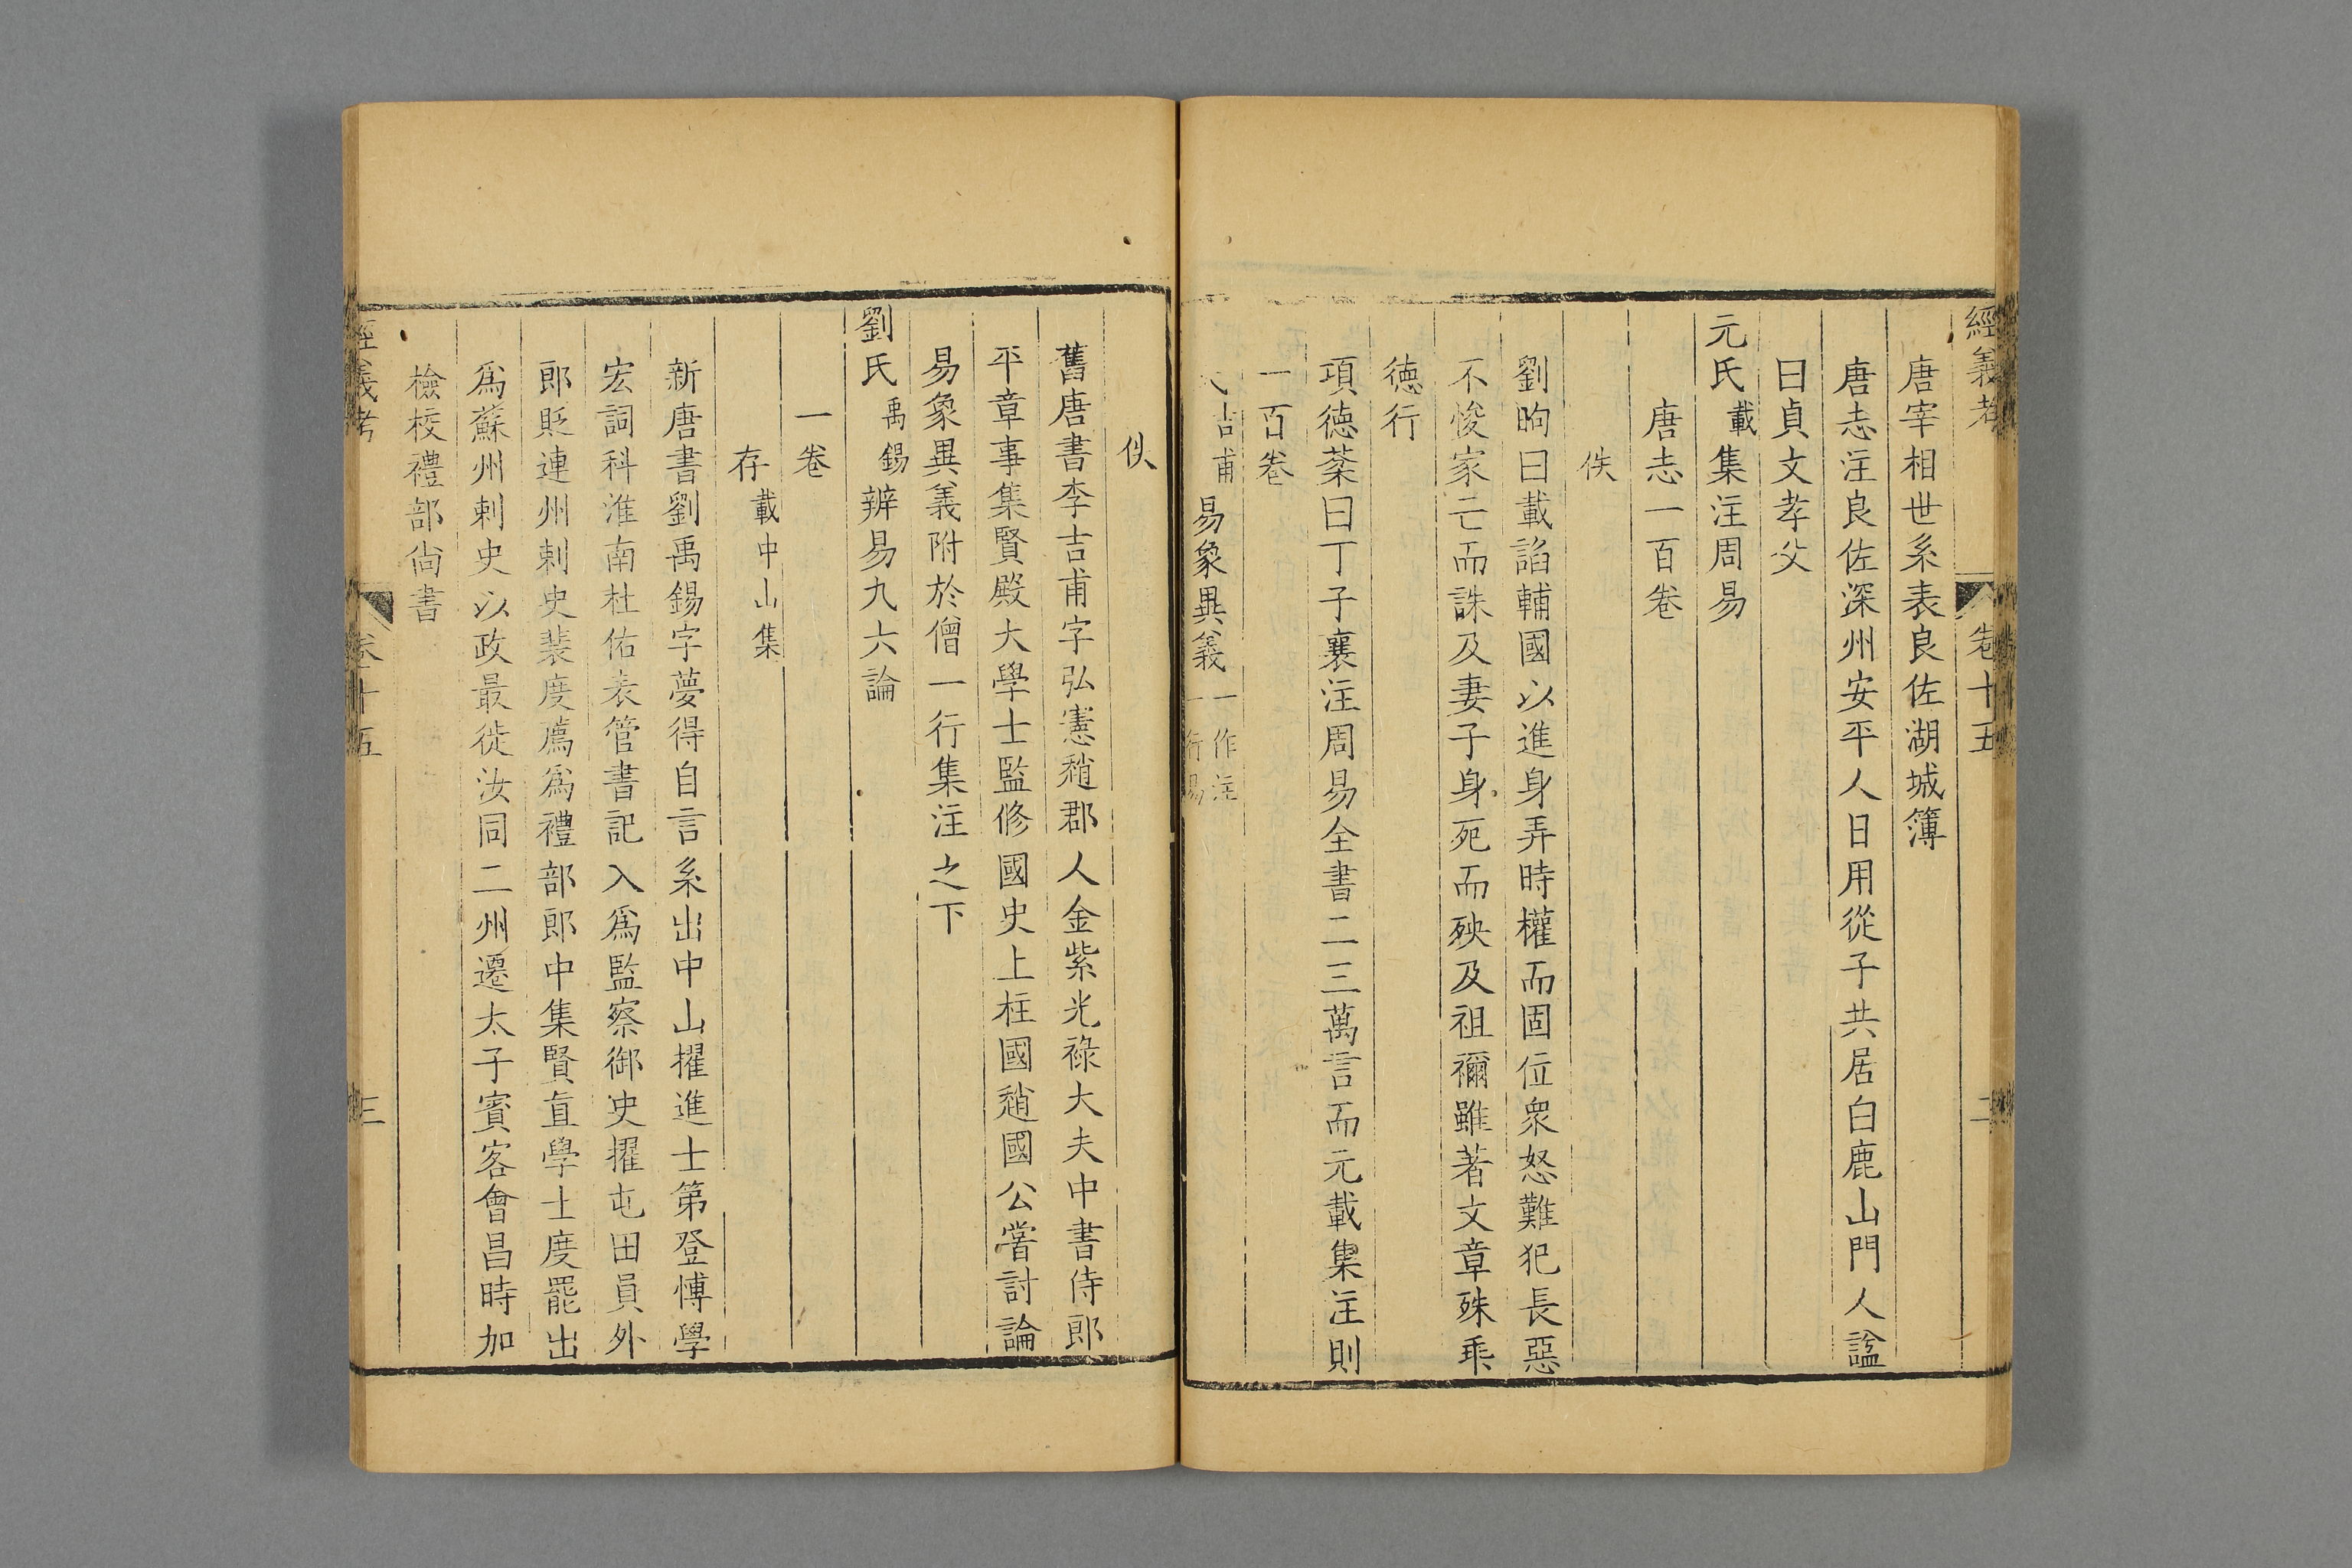 經義考 卷十五 二
唐宰相世系表良佐湖城簿
唐志注良佐深州安平人日用從子共居白鹿山門人諡
曰貞文孝父
元氏載集注周易
唐志一百卷
佚
劉昫曰載諂輔國以進身弄時權而固位衆怒難犯長惡
不悛家亡而誅及妻子身死而殃及祖禰雖著文章殊乖
德行
項德棻曰丁子襄注周易全書二三萬言而元載集注則
一百卷
吉甫易象異義一作注一行易
佚
舊唐書李吉甫字弘憲趙郡人金紫光祿大夫中書侍郎
平章事集賢殿大學士監修國史上柱國趙國公嘗討論
易象異義附於僧一行集注之下
劉氏禹錫辨易九六論
一卷
存載中山集
新唐書劉禹錫字夢得自言系出中山擢進士第登博學
宏詞科淮南杜佑表管書記入爲監察御史擢屯田員外
郎貶連州刺史裴度薦爲禮部郎中集賢直學士度罷出
爲蘇州刺史以政最徙汝同二州遷太子賓客會昌時加
檢校禮部尚書
經義考 卷十五 三